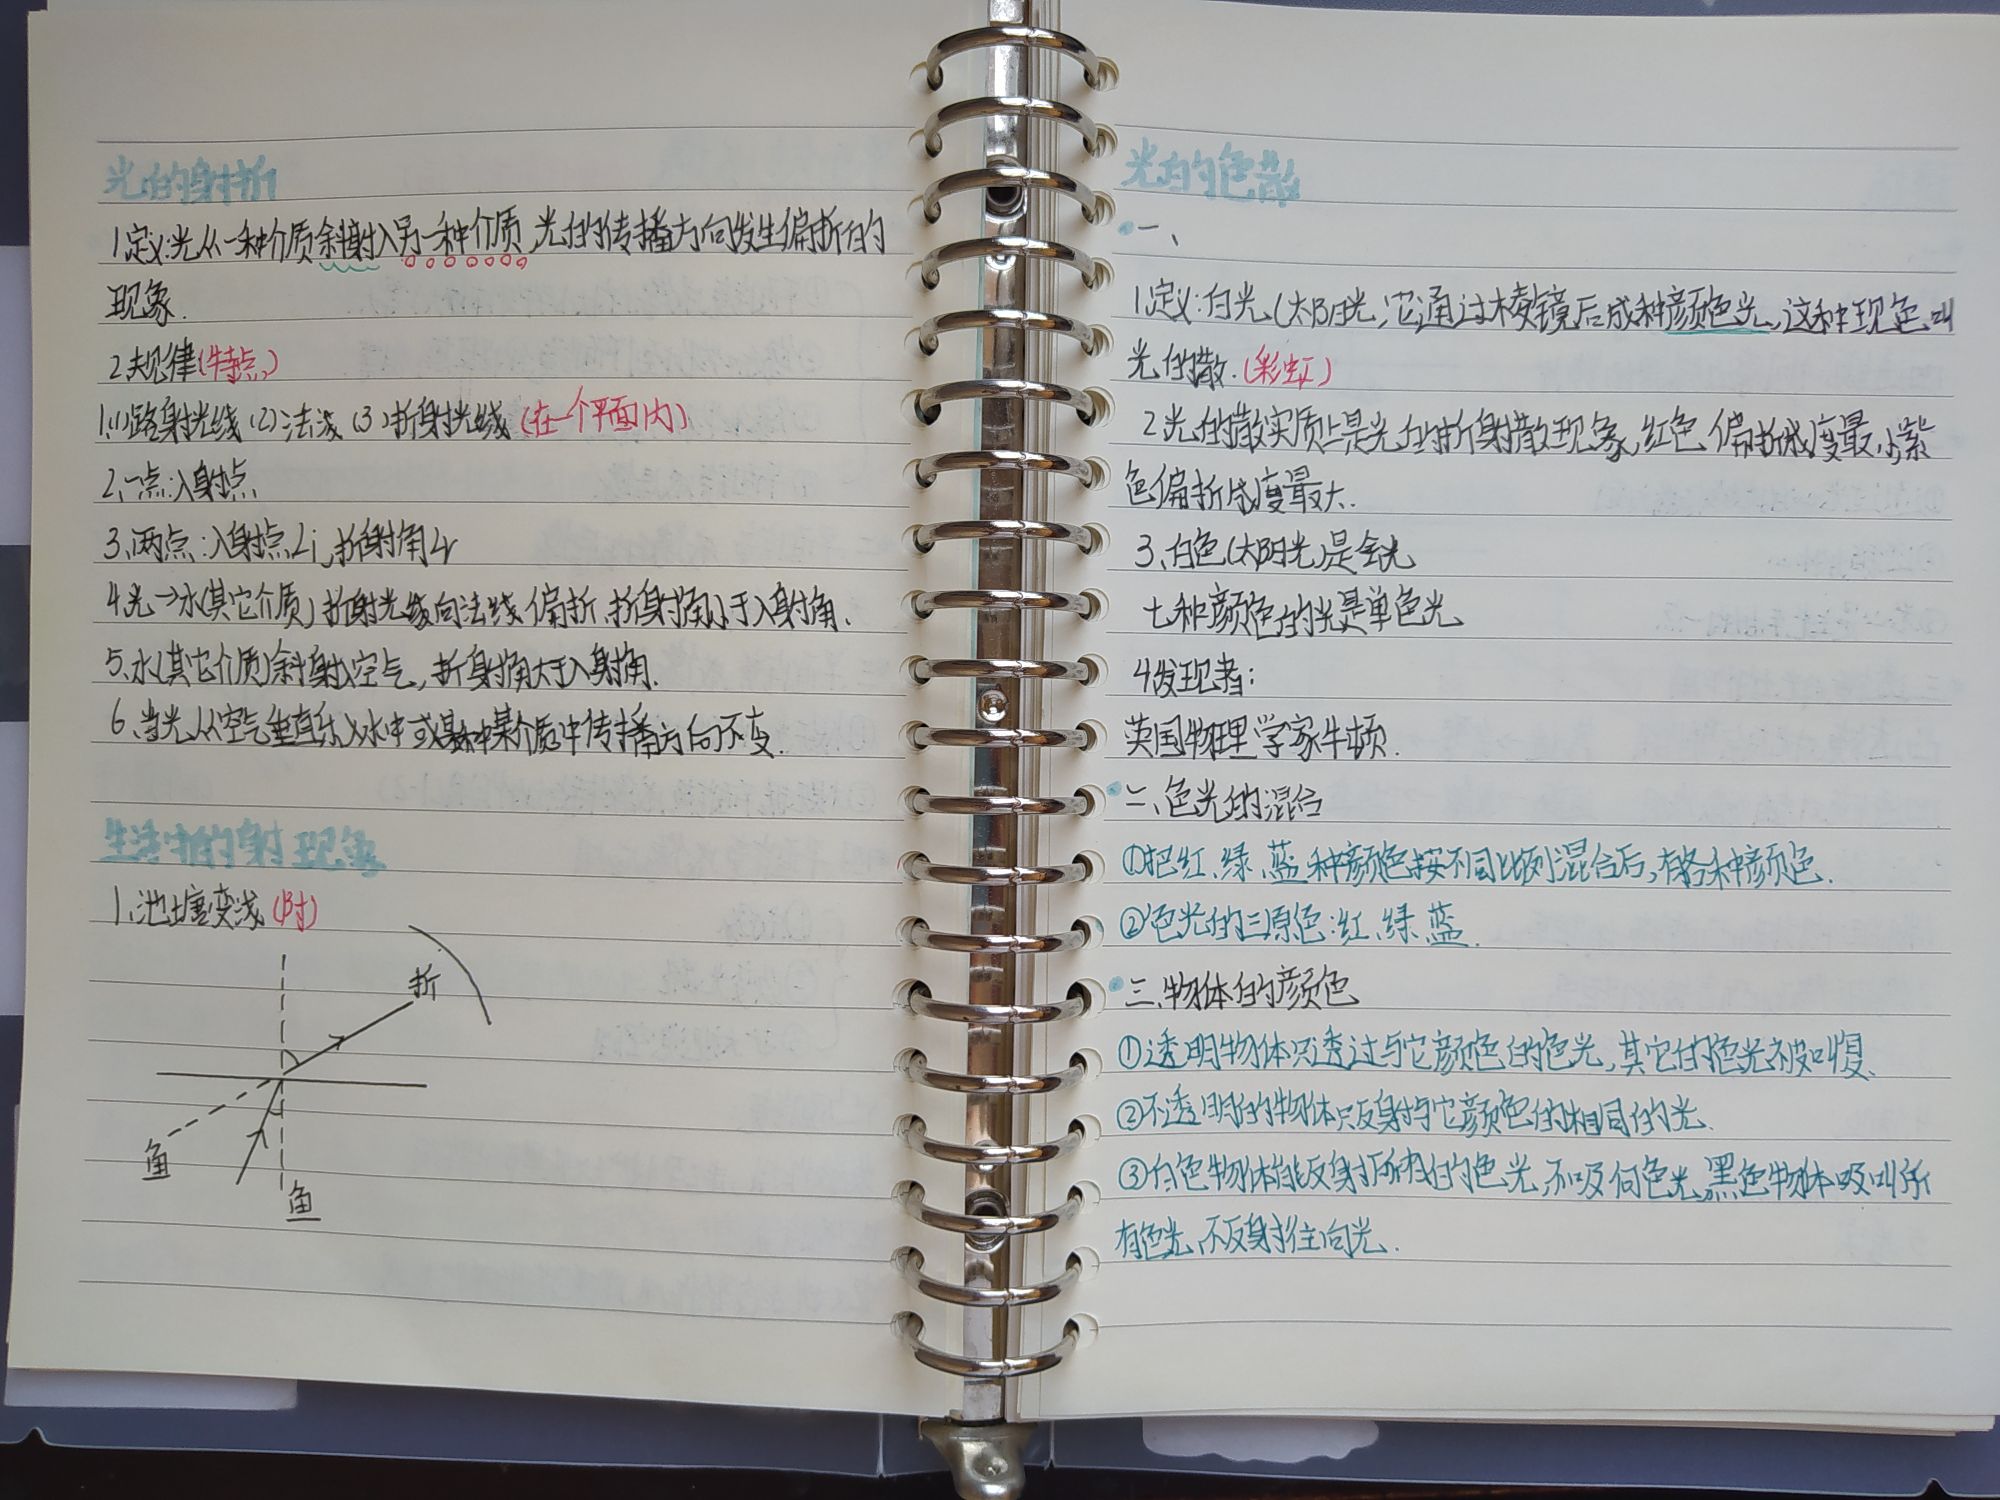 光的射折
1定义:光从一种介质斜射入另一种介质,光的传播方向发生偏折的
现象.
2规律(特点)
1.(1)路射光线(2)法浅(3)折射光线(在一个平面内)
2、一点:入射点
3、两点:入射点∠i,折射角∠r
4光→水(其它介质)折射光线向法线偏折,折射角小于入射角.
5.水(其它介质)斜射空气,折射角大于入射角.
6、当光从空气垂直乐入水中或某介质中传播方向不变.
生活中的射现象
1、池塘变浅
折
鱼
鱼
光的色散
一、
1.定义:白光(太阳光,它通过棱镜后成种颜色光,这种现色叫
光的散.(彩虹)
2光的散实质上是光的折射散现象,红色偏折成度最小,紫
色偏折成度最大.
3、白色(太阳光)是全光
七种颜色的光是单色光
4发现者:
英国物理学家牛顿.
二、色光的混合
①把红、绿、蓝种颜色按不同比例混合后,有各种颜色.
②色光的三原色:红、绿、蓝.
三、物体的颜色
①透明物体只透过与它颜色的色光,其它的色光被叫复.
②不透明的物体只反射与它颜色的相同的光.
③白色物体能反射所有的色光,不吸何色光,黑色物体吸叫所
有色光,不反射往向光.